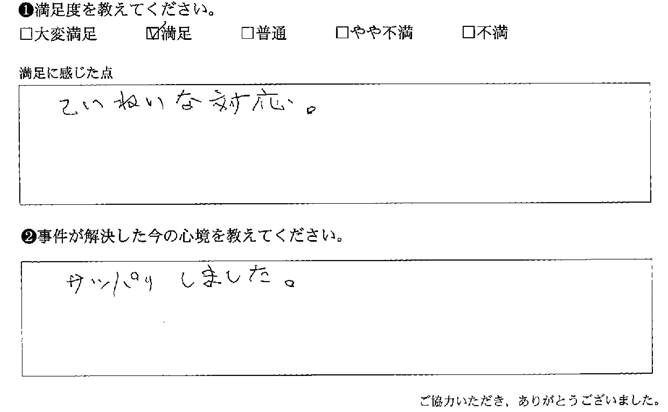 ❶満足度を教えてください。
□大変満足 ☑満足 □普通 □やや不満 □不満
満足に感じた点
ていねいな対応。
❷事件が解決した今の心境を教えてください。
サッパリしました。
ご協力いただき，ありがとうございました。